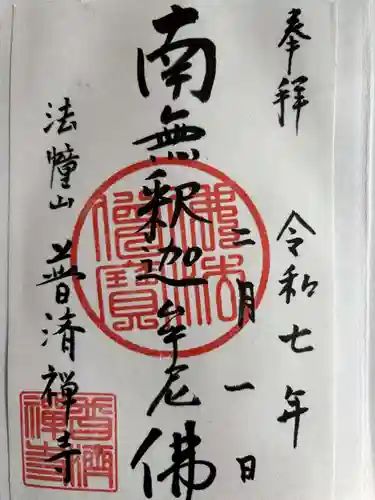 奉拝
令和七年
二月一日
南無釈迦牟尼佛
法幢山
普済禅寺
佛法僧寳
普濟禅寺